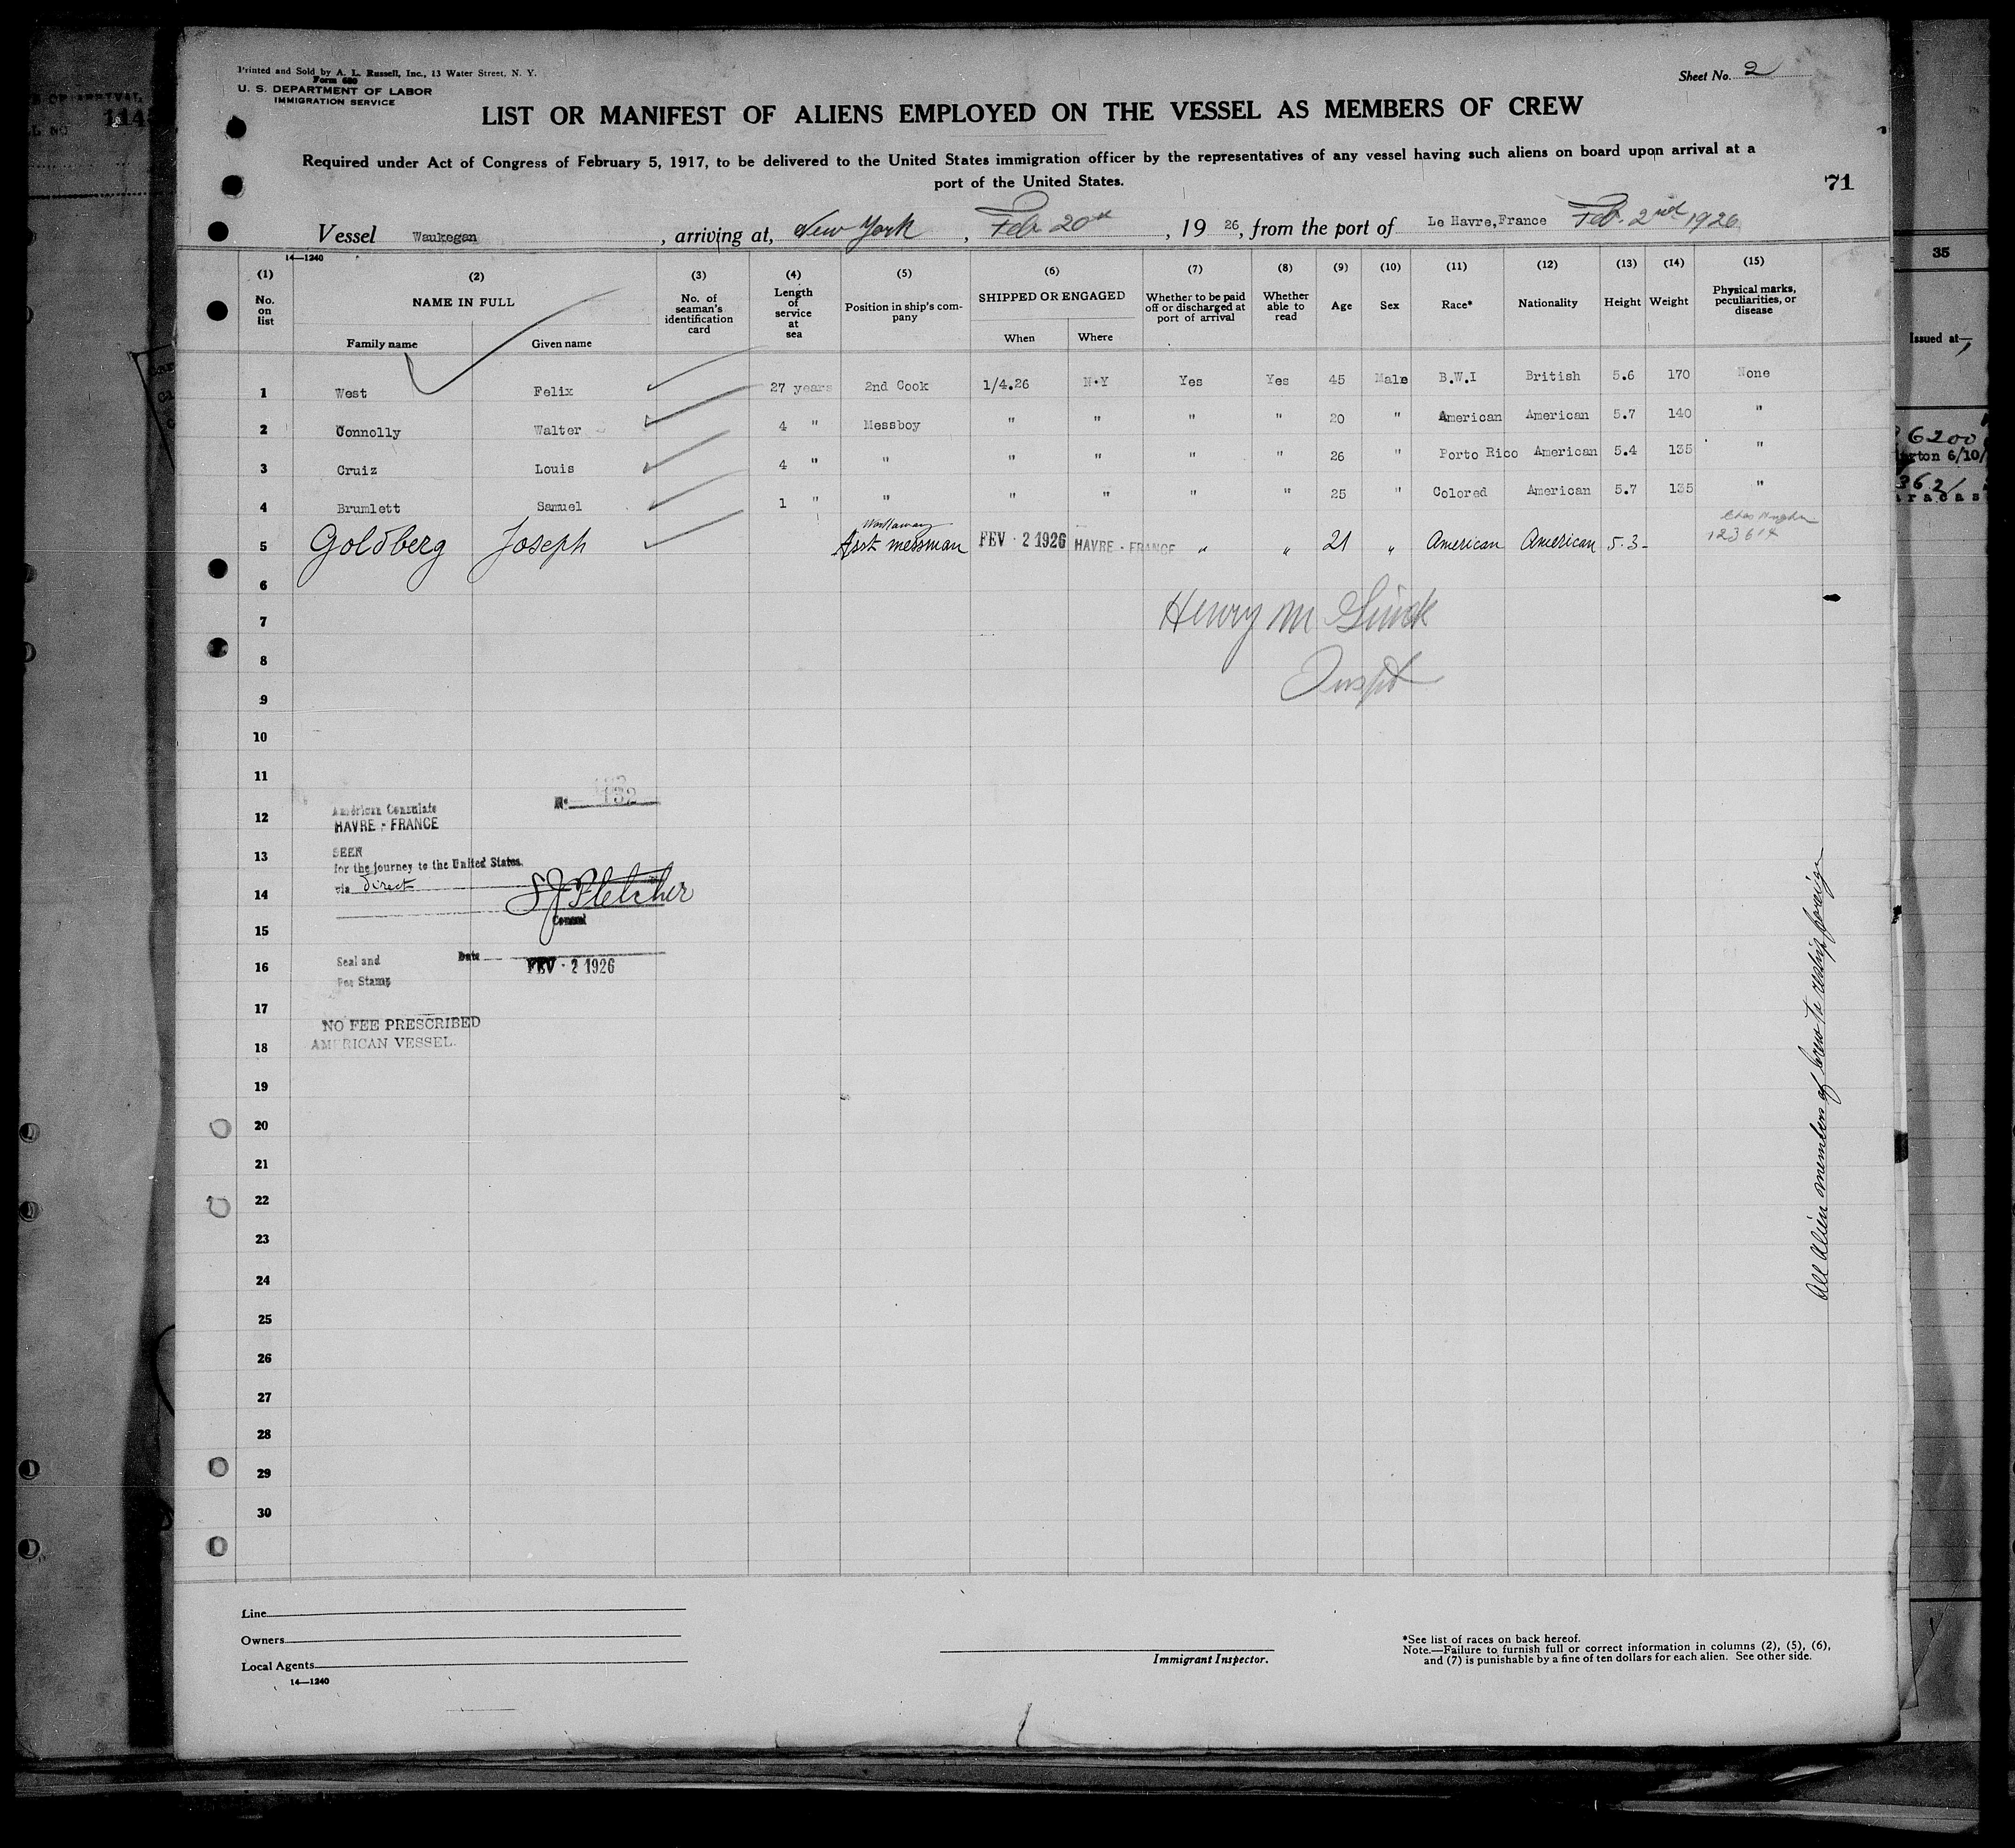 Printed and Sold by A. L. Russell, Inc., 13 Water Street, N. Y.
Form 680
U. S. DEPARTMENT OF LABOR
IMMIGRATION SERVICE
Sheet No. 2
LIST OR MANIFEST OF ALIENS EMPLOYED ON THE VESSEL AS MEMBERS OF CREW
Required under Act of Congress of February 5, 1917, to be delivered to the United States immigration officer by the representatives of any vessel having such aliens on board upon arrival at a
port of the United States.
71
Vessel Waukegan, arriving at, New York, Feb 20th, 19 26, from the port of Le Havre, France Feb. 2nd 1926
14—1240
(1) No. on list
(2) NAME IN FULL Family name Given name
(3) No. of seaman's identification card
(4) Length of service at sea
(5) Position in ship's company
(6) SHIPPED OR ENGAGED When Where
(7) Whether to be paid off or discharged at port of arrival
(8) Whether able to read
(9) Age
(10) Sex
(11) Race*
(12) Nationality
(13) Height
(14) Weight
(15) Physical marks, peculiarities, or disease
1 West Felix 27 years 2nd Cook 1/4.26 N.Y Yes Yes 45 Male B.W.I British 5.6 170 None
2 Connolly Walter 4 " Messboy " " " " 20 " American American 5.7 140 "
3 Cruiz Louis 4 " " " " " " 26 " Porto Rico American 5.4 135 "
4 Brumlett Samuel 1 " " " " " " 25 " Colored American 5.7 135 "
5 Goldberg Joseph Workaway Asst messman FEV · 2 1926 HAVRE - FRANCE " " 21 " American American 5.3- 123614
6
7 Henry M
8
9
10
11
12
13
14
15
16
17
18
19
20
21
22
23
24
25
26
27
28
29
30
No 132
American Consulate
HAVRE - FRANCE
SEEN
for the journey to the United States.
via direct
S J Fletcher
Consul
Seal and
Fee Stamp
Date FEV · 2 1926
NO FEE PRESCRIBED
AMERICAN VESSEL.
All Alien members of crew to reship foreign
Line
Owners
Local Agents
14—1240
Immigrant Inspector.
*See list of races on back hereof.
Note.—Failure to furnish full or correct information in columns (2), (5), (6),
and (7) is punishable by a fine of ten dollars for each alien. See other side.
35
Issued at—
6200